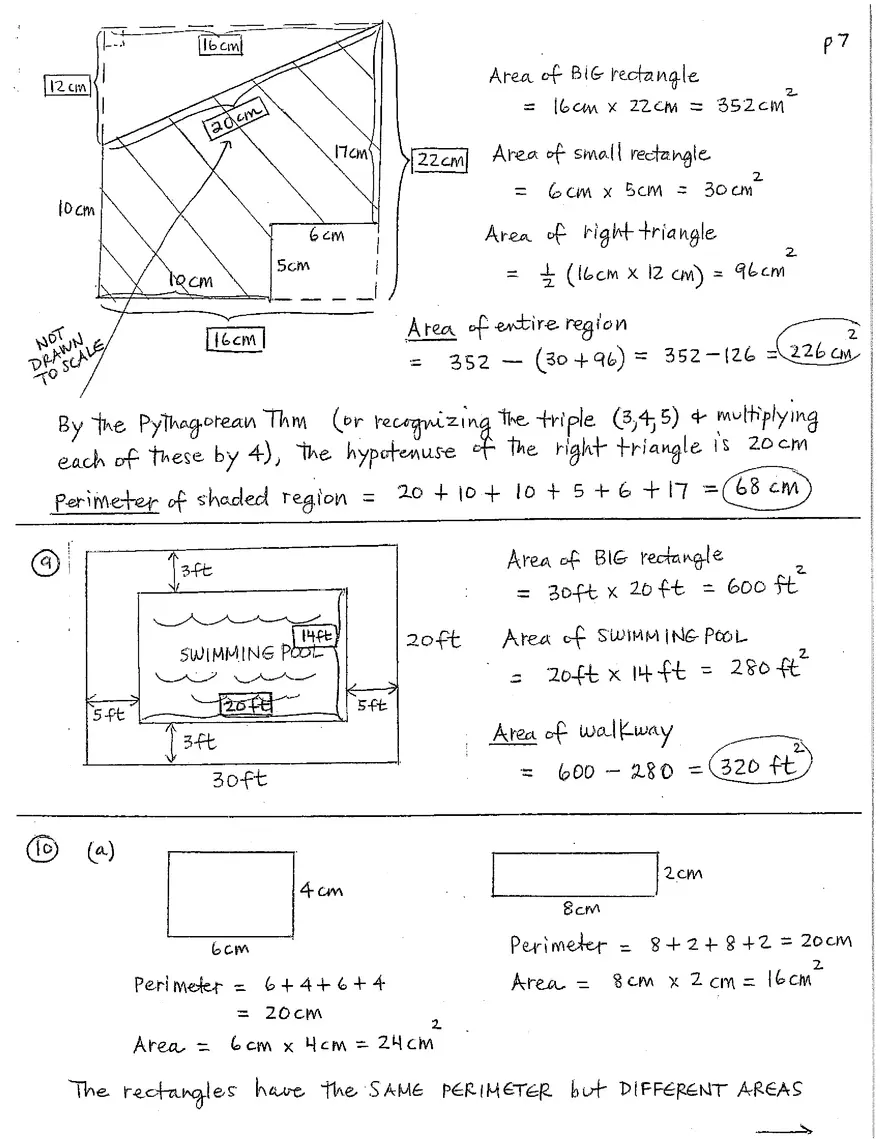 p7
16cm
12cm
20cm
17cm
22cm
10cm
6cm
5cm
10cm
16cm
NOT
DRAWN
TO SCALE
Area of BIG rectangle
= 16cm x 22cm = 352cm²
Area of small rectangle
= 6cm x 5cm = 30cm²
Area of right triangle
= 1/2 (16cm x 12 cm) = 96cm²
Area of entire region
= 352 — (30 + 96) = 352 - 126 = 226 cm²
By the Pythagorean Thm (or recognizing the triple (3,4,5) & multiplying
each of these by 4), the hypotenuse of the right triangle is 20cm
Perimeter of shaded region = 20 + 10 + 10 + 5 + 6 + 17 = 68 cm
9
3ft
14ft
SWIMMING POOL
20ft
5ft
5ft
3ft
20ft
30ft
Area of BIG rectangle
= 30ft x 20ft = 600 ft²
Area of SWIMMING POOL
= 20ft x 14ft = 280 ft²
Area of walkway
= 600 - 280 = 320 ft²
10 (a)
4cm
6cm
Perimeter = 6+4+6+4
= 20cm
Area = 6cm x 4cm = 24cm²
2cm
8cm
Perimeter = 8+2+8+2 = 20cm
Area = 8cm x 2cm = 16cm²
The rectangles have the SAME PERIMETER but DIFFERENT AREAS